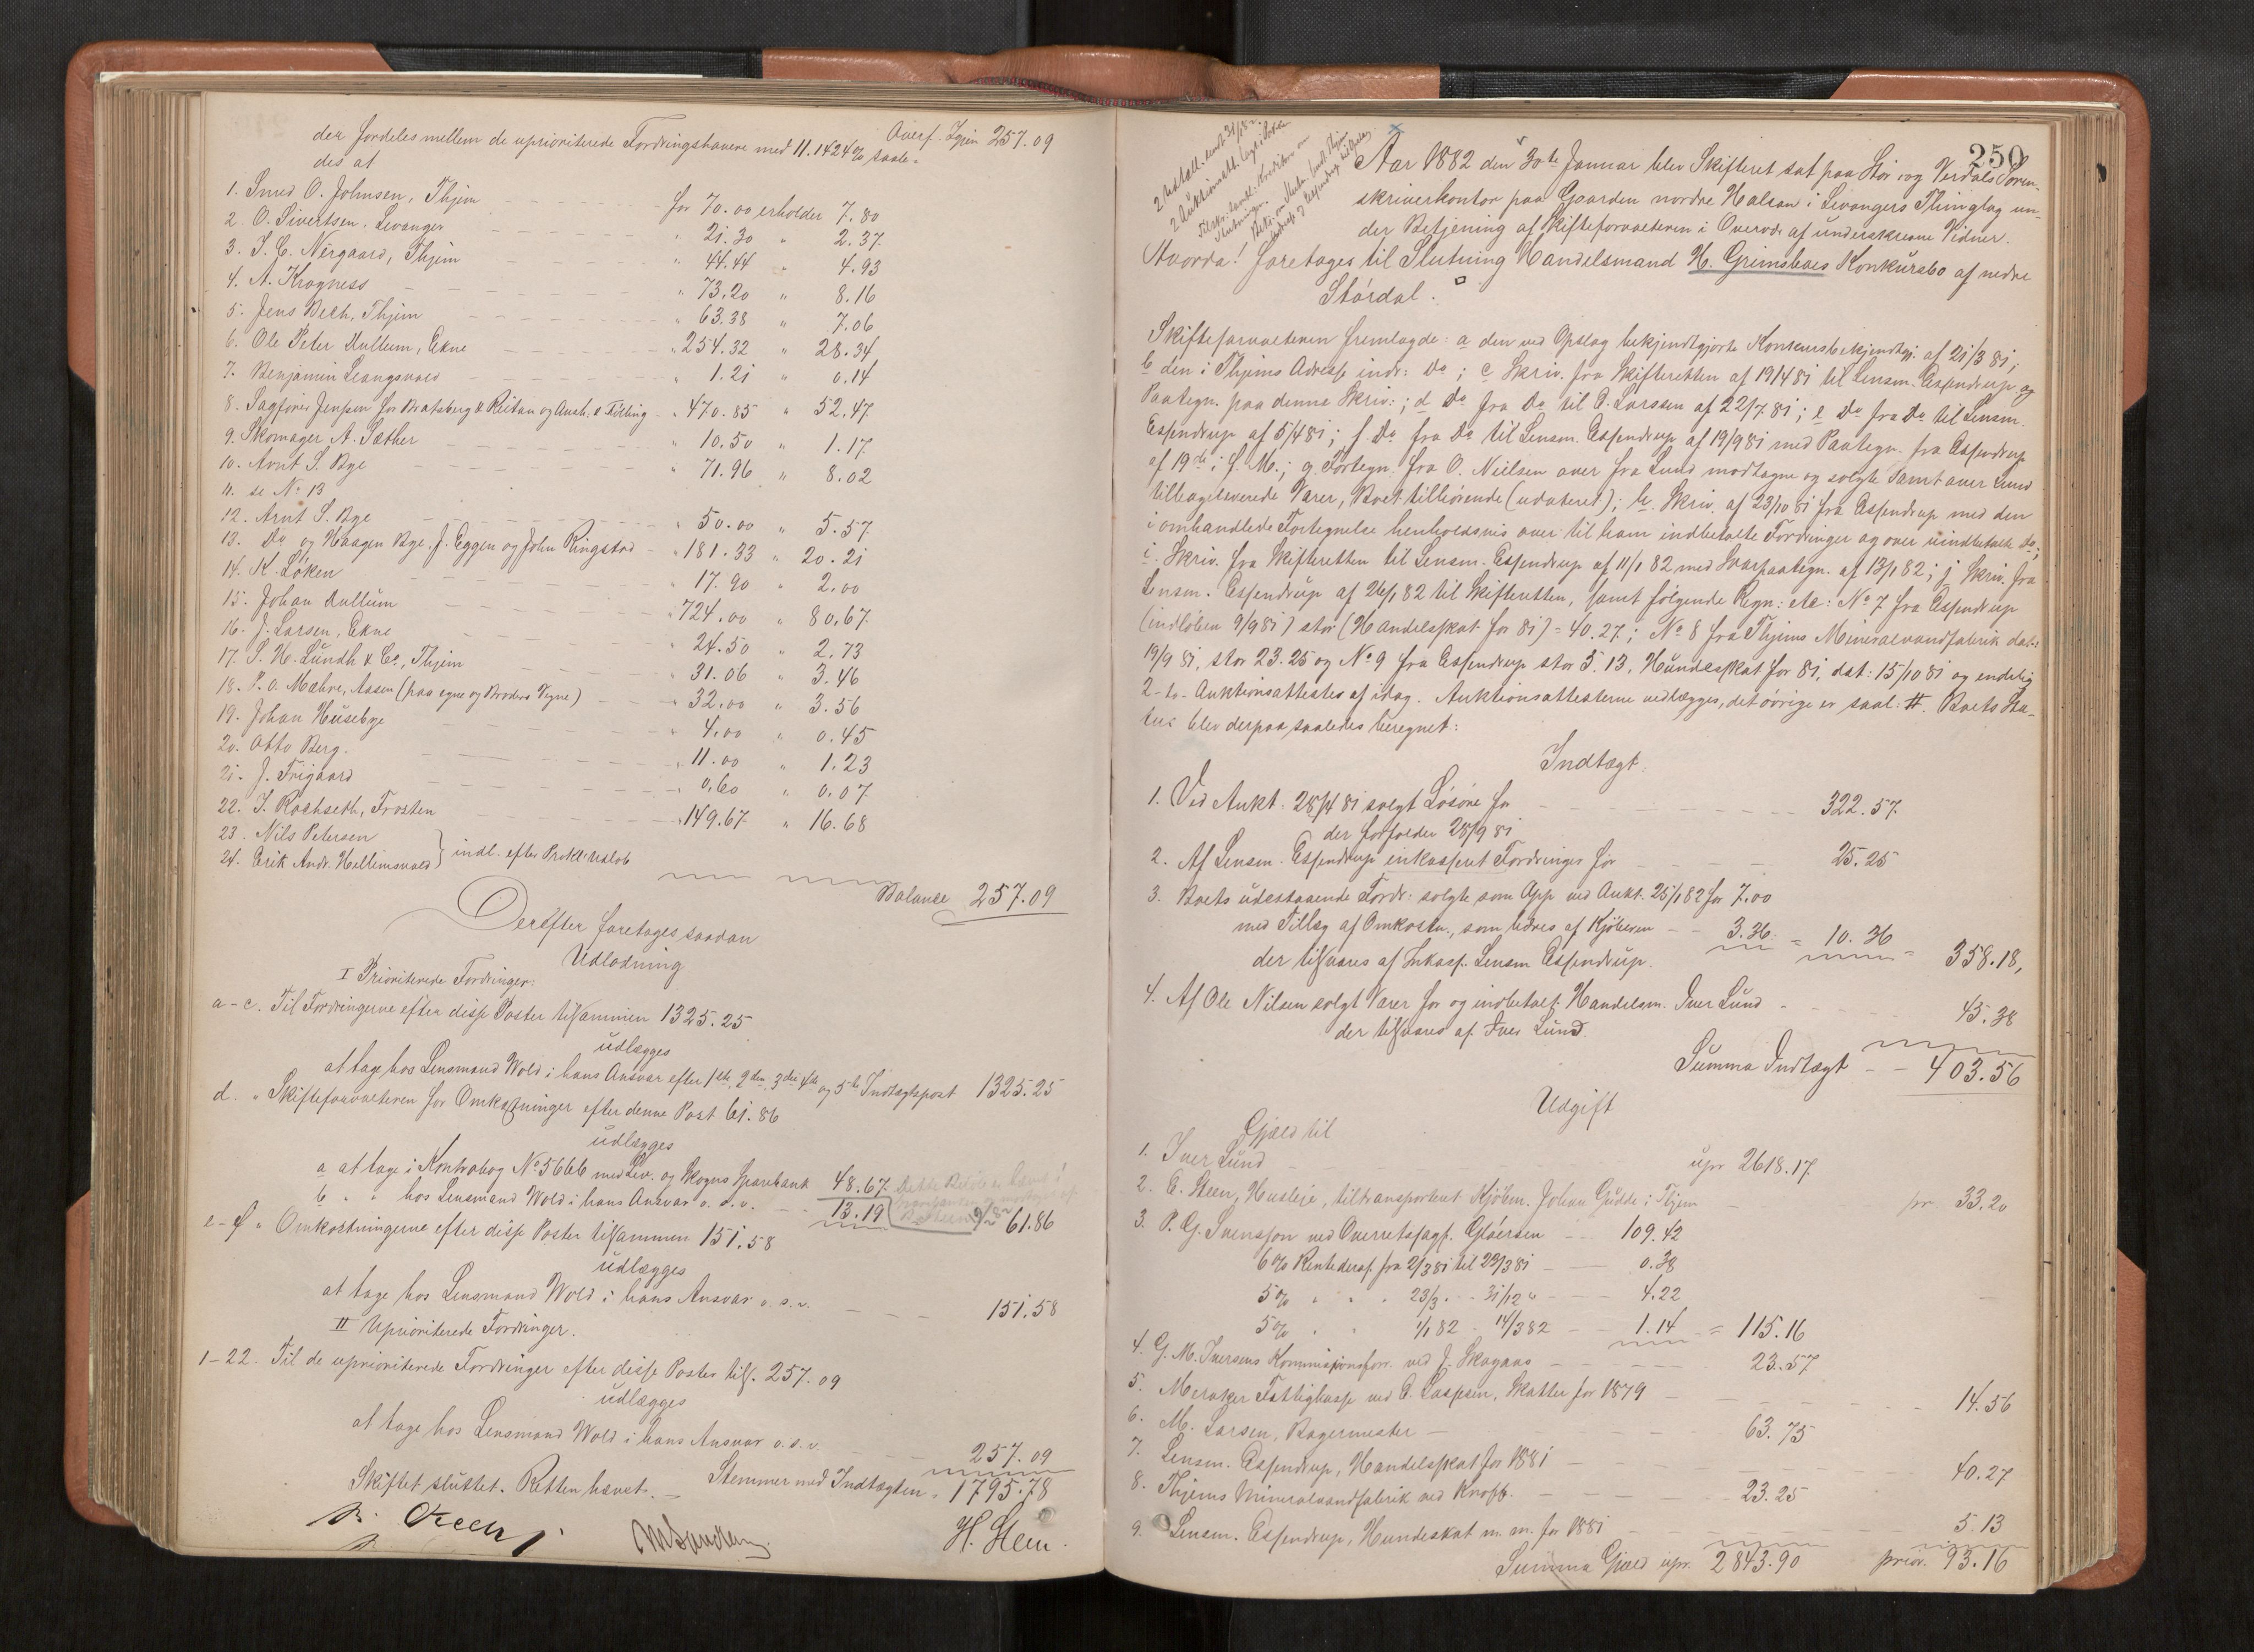 Overf. Thjem 257.09
der fordeles mellem de uprioriterede Fordringshavere med 11.1424% saale-
des at
1. Smed O. Johnsen, Thjem for 70.00 erholder 7.80
2. O. Sivertsen, Levanger " 21.30 " 2.37
3. J. C. Nérgaard, Thjem " 44.44 " 4.93
4. A. Krogness " 73.20 " 8.16
5. Jens Bech, Thjem " 63.38 " 7.06
6. Ole Peter Hullum, Ekne " 254.32 " 28.34
7. Benjamin Leangsvold " 1.21 " 0.14
8. Sagfører Jenssen for Bratsberg & Reitan og Aush. & Följing " 470.85 " 52.47
9. Skomager A. Sæther " 10.50 " 1.17
10. Arnt S. Bye " 71.96 " 8.02
11. se No 13
12. Arnt S. Bye " 50.00 " 5.57
13. Do og Haagen Bye, J. Eggen og John Ringstad " 181.33 " 20.21
14. K. Löken " 17.90 " 2.00
15. Johan Hullum " 724.00 " 80.67
16. J. Larsen, Ekne " 24.50 " 2.73
17. S. H. Lundh & Co, Thjem " 31.06 " 3.46
18. P. O. Mæhre, Aasen (paa egne og Broders Vegne) " 32.00 " 3.56
19. Johan Husebye " 4.00 " 0.45
20. Otto Berg. " 11.00 " 1.23
21. J. Frigaard " 0.60 " 0.07
22. J. Rochseth, Frosten " 149.67 " 16.68
23. Nils Petersen
24. Erik Andr. Hellemsvold } indl. efter Prokl. Udløb
Balance 257.09
Derefter foretages saadan
Udlodning
I Prioriterede Fordringer:
a-c. Til Fordringerne efter disse Poster tilsammen 1325.25
udlægges
at tage hos Lensmand Wold i hans Ansvar efter 1ste, 2den, 3die, 4de og 5te Indtægtspost 1325.25
d. " Skifteforvalteren for Omkostninger efter denne Post 61.86
udlægges
a at tage i Kontrabog No 5666 med Lev. og Skogns Sparebank 48.67
b " " hos Lensmand Wold i hans Ansvar o. s. v. 13.19 61.86
e-f " Omkostningerne efter disse Poster tilsammen 151.58
udlægges
at tage hos Lensmand Wold i hans Ansvar o. s. v. 151.58
II Uprioriterede Fordringer.
1-22. Til de uprioriterede Fordringer efter disse Poster tils. 257.09
udlægges
at tage hos Lensmand Wold i hans Ansvar o. s. v. 257.09
Stemmer med Indtægten 1795.78
Skiftet sluttet. Retten hævet.
H. Stem.
250
Aar 1882 den 30te Januar blev Skifteret sat paa Stør og Verdals Soren-
skriverkontor paa Gaarden nordre Halsan i Levangers Thinglag un-
der Betjening af Skifteforvalteren i Overvær af underskrevne Vidner.
Hvorda! foretages til Slutning Handelsmand H. Grimsboes Konkursbo af nedre
Størdal.
Skifteforvalteren fremlagde: a den ved Opslag bekjendtgjorte Konkursbekjendtgj. af 21/3 81;
b den i Thjems Adresse indr: Do; c Skriv. fra Skifteretten af 19/4 81 til Lensm. Espendrup og
Paategn. paa denne Skriv:; d Do fra Do til E. Larssen af 22/7 81; e Do fra Do til Lensm.
Espendrup af 5/4 81; f. Do fra Do til Lensm. Espendrup af 19/9 81 med Paategn. fra Espendrup
af 19de i f. M.; g Fortegn. fra O. Nielsen over fra Lund modtagne og solgte samt over Lund
tilbageleverede Varer, Boet tilhørende (udateret); h. Skriv. af 23/10 81 fra Espendrup med den
i omhandlede Fortegnelse henholdsvis over til ham indbetalte Fordringer og over uindbetalte Do;
i. Skriv. fra Skifteretten til Lensm. Espendrup af 11/1 82 med Svarpaategn. af 13/1 82; j Skriv. fra
Lensm. Espendrup af 26/1 82 til Skifteretten, samt følgende Regn: etc: No 7 fra Espendrup
(indløben 9/9 81) stor (Handelsskat for 81) = 40.27; No 8 fra Thjems Mineralvandfabrik dat:
19/9 81, stor 23.25 og No 9 fra Espendrup stor 5.13, Hundeskat for 81, dat: 15/10 81 og endelig
2 to Auktionsattester af idag. Auktionsattesterne vedlægges, det øvrige er saal: #. Boets Sta-
tus blev derpaa saaledes beregnet:
Indtægt.
1. Ved Aukt. 28/4 81 solgt Løsøre for 322.57
der forfalder 28/9 81
2. Af Lensm. Espendrup inkasseret Fordringer for 25.25
3. Boets udestaaende Fordr: solgte som App ved Aukt. 25/1 82 for 7.00
med Tillæg af Omkostn., som udredes af Kjøberen 3.36 = 10.36
der tilsvares af Inkass. Lensm Espendrup. 358.18
4. Af Ole Nilsen solgt Varer for og indbetalt Handelsm. Iver Lund 45.38
der tilsvares af Iver Lund.
Summa Indtægt 403.56
Udgift
Gjæld til
1. Iver Lund upr 2618.17
2. E. Steen, Husleie, tiltransporteret Kjøbm. Johan Gudde i Thjem pr 33.20
3. P. G. Svensson ved Overretssagf. Gløersen 109.42
6% Rente deraf fra 2/3 81 til 23/3 81 0.38
5% " " " 23/3 " - 31/12 " 4.22
5% " " 1/1 82 - 14/3 82 1.14 = 115.16
4. G. M. Iversens Kommissionsforr. ved J. Skogaas 23.57
5. Meraker Fattigkasse ved E. Caspersen, Skatter for 1879 14.56
6. M. Larsen, Bagermester 63.75
7. Lensm. Espendrup, Handelsskat for 1881 40.27
8. Thjems Mineralvandfabrik ved Knoff. 23.25
9. Lensm. Espendrup, Hundeskat m. m. for 1881 5.13
Summa Gjæld upr. 2843.90 prior. 93.16